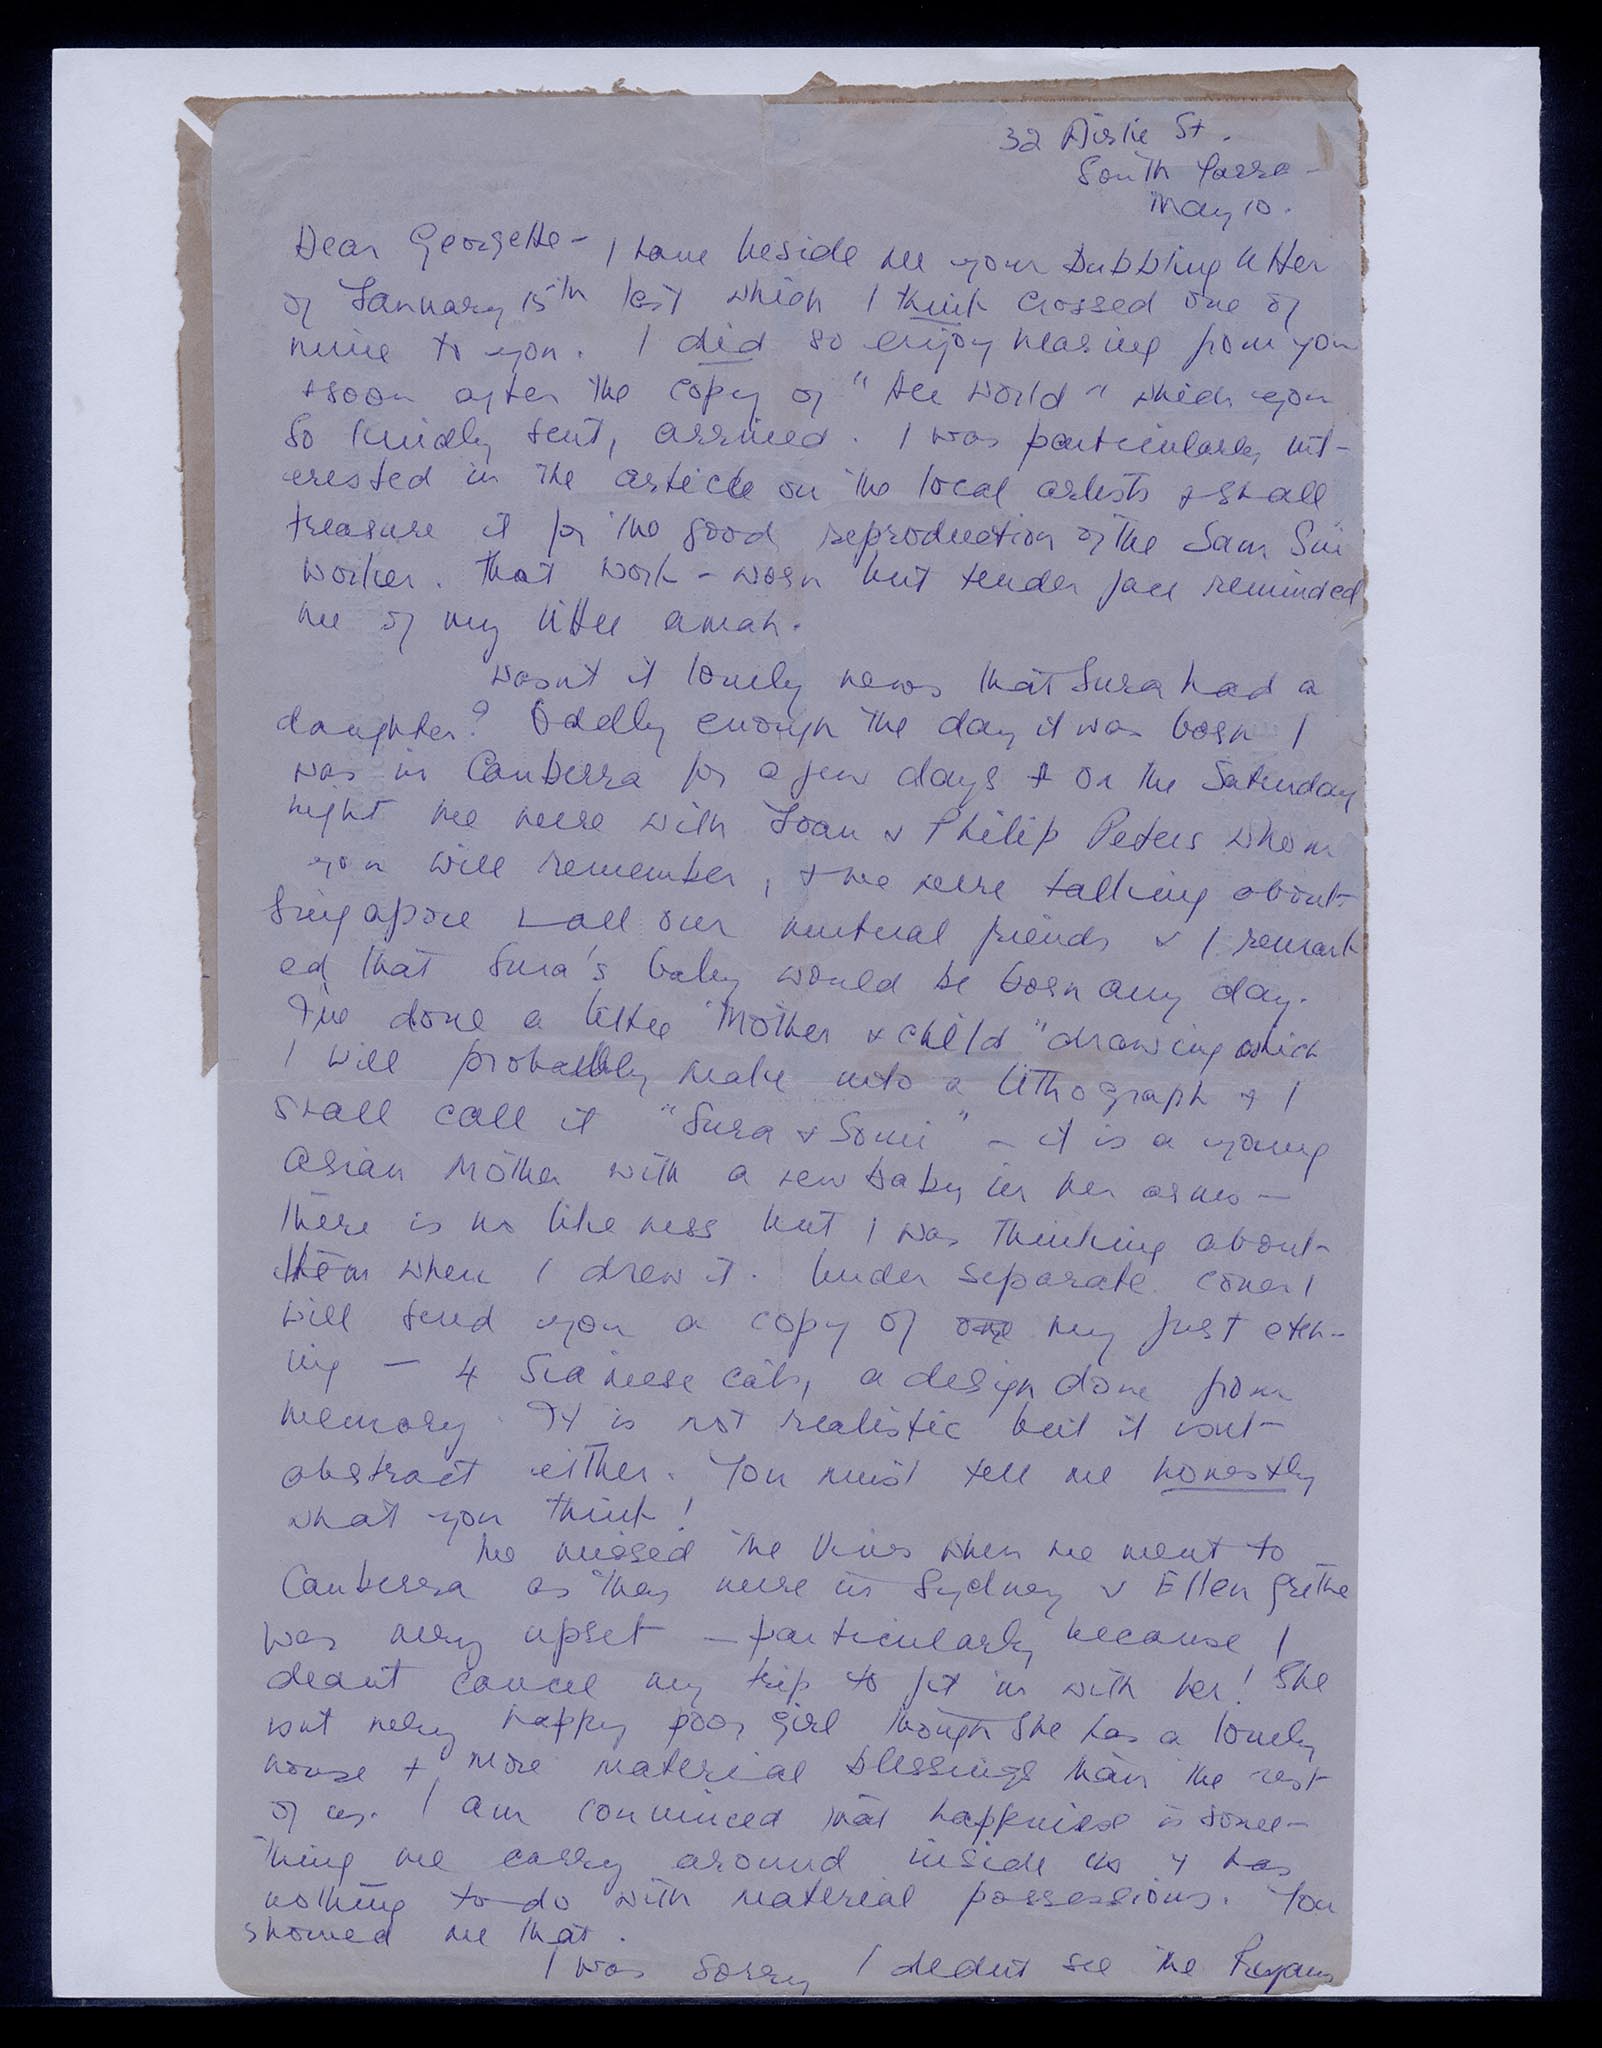 32 Airlie St.
South Yarra -
May 10.
Dear Georgette - I have beside me your bubbling letter
of January 15th last which I think crossed one of
mine to you. I did so enjoy hearing from you
+ soon after the copy of "Her World" which you
so kindly sent, arrived. I was particularly int-
erested in the article on the local artists & shall
treasure it for the good reproduction of the Sam Sui
worker. That work-worn but tender face reminded
me of my little amah.
Wasn't it lovely news that Sura had a
daughter? Oddly enough the day it was born I
was in Canberra for a few days & on the Saturday
night we were with Joan & Philip Peters whom
you will remember, & we were talking about
Singapore & all our mutual friends & I remark
ed that Sura's baby would be born any day.
I've done a little "Mother & child" drawing which
I will probably make into a lithograph & I
shall call it "Sura & Somi" - it is a young
Asian Mother with a new baby in her arms -
there is no likeness but I was thinking about
them when I drew it. Under separate cover I
will send you a copy of one my first etch-
ing - 4 Siamese cats, a design done from
memory. It is not realistic but it isnt
abstract either. You must tell me honestly
what you think!
We missed the when we went to
Canberra as they were in Sydney & Ellen Grethe
was very upset - particularly because I
didnt cancel my trip to fit in with her! She
isnt very happy poor girl though she has a lovely
house + more material blessings than the rest
of us. I am convinced that happiness is some-
thing we carry around inside us & has
nothing to do with material possessions. You
showed me that.
I was sorry I didnt see the